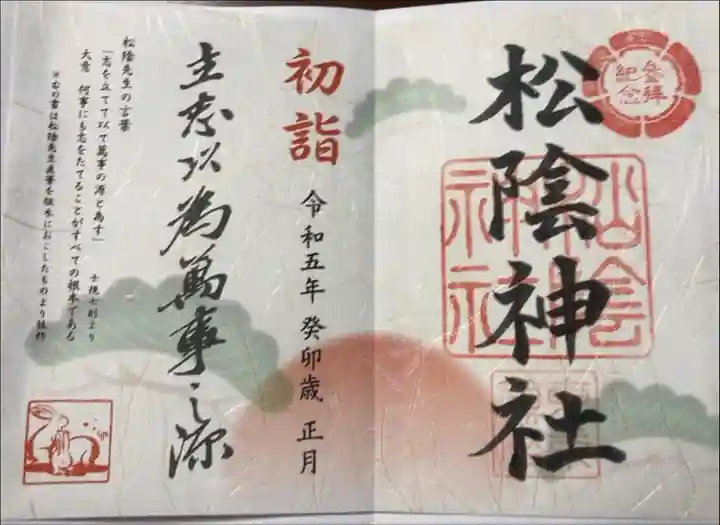 参拝
紀念
松陰神社
松陰
神社
初詣
令和五年 癸卯歳 正月
立志以為萬事之源
松陰先生の言葉
「志を立てて以て萬事の源と為す」
士規七則より
大意 何事にも志をたてることがすべての根本である
※右の書は松陰先生直筆を版木におこしたものより抜粋